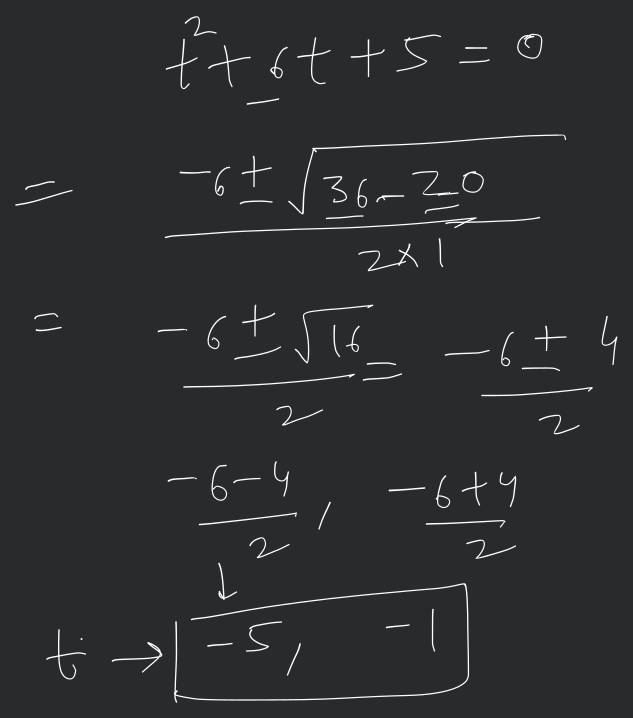 t²+6t+5=0
= (-6±√(36-20))/(2×1)
= (-6±√16)/2 = (-6±4)/2
(-6-4)/2 , (-6+4)/2
↓
t → -5, -1